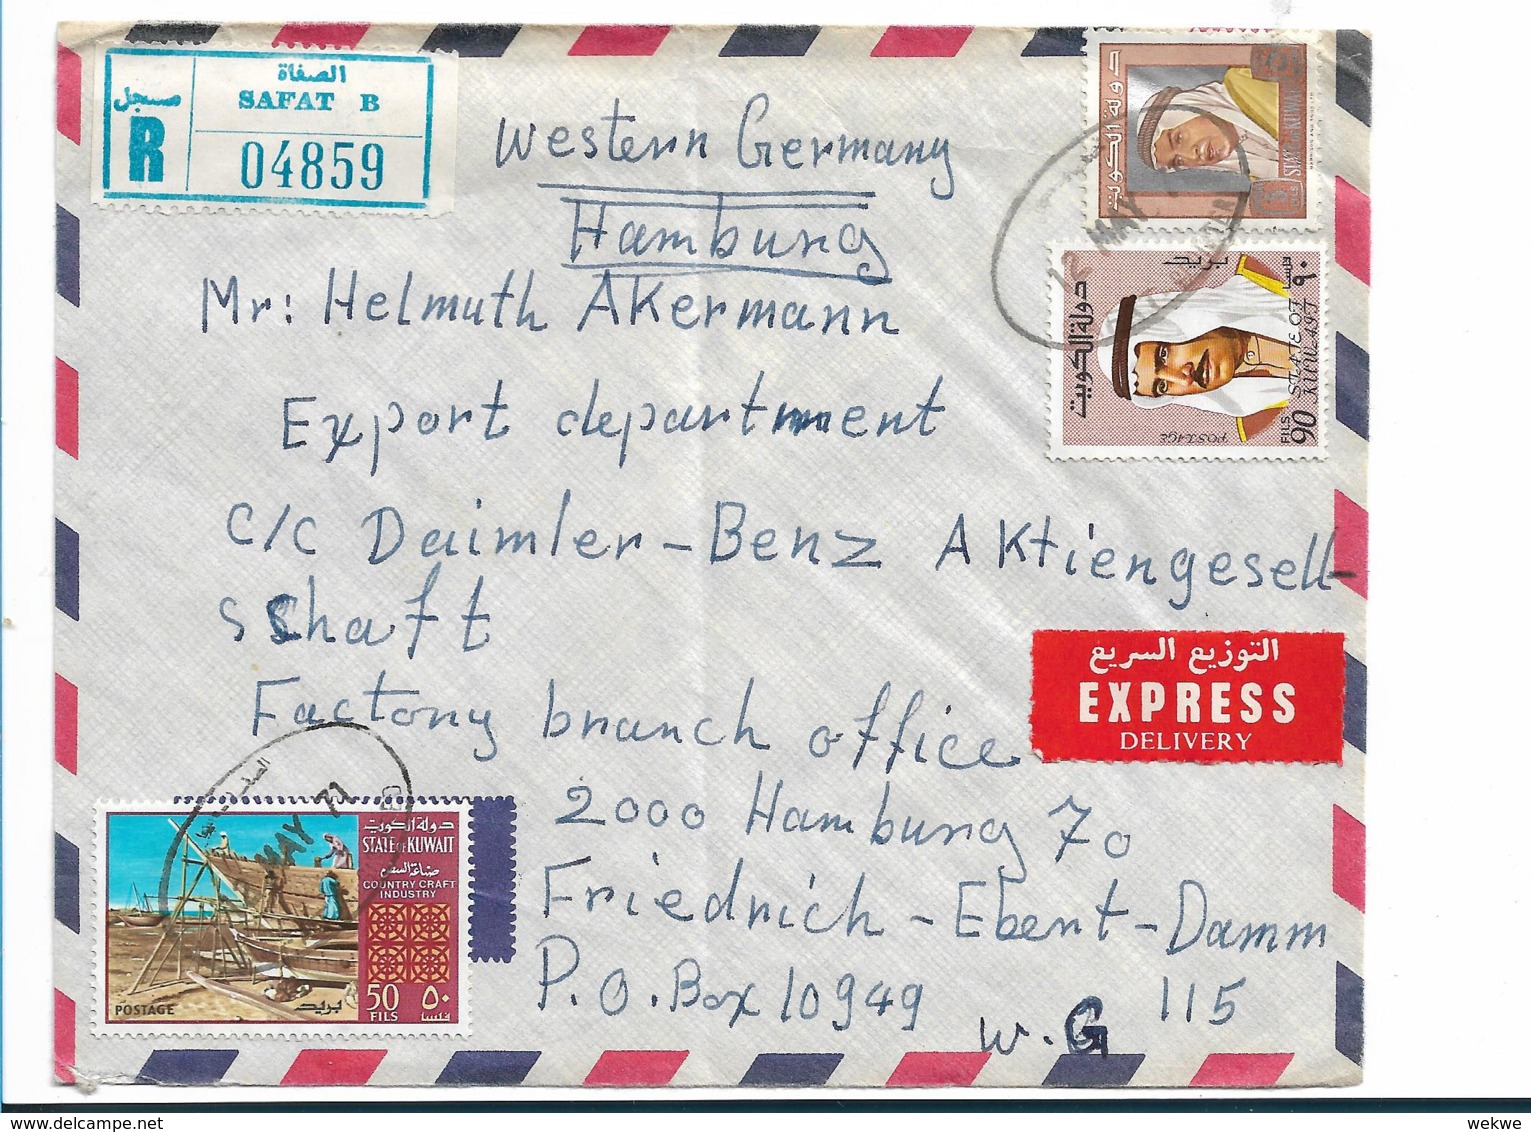 الصفاة
SAFAT B
مسجل
R
04859
Western Germany
Hamburg
Mr: Helmuth Akermann
Export department
c/c Daimler-Benz Aktiengesell-
sschaft
Factory branch office
2000 Hamburg 70
Friedrich-Ebert-Damm
115
P.O.Box 10949
W.G
دولة الكويت
STATE OF KUWAIT
FILS
MAY
دولة الكويت
STATE OF KUWAIT
POSTAGE
90 FILS
٩٠ فلسا
التوزيع السريع
EXPRESS
DELIVERY
MAY 71
دولة الكويت
STATE OF KUWAIT
صناعة السفن
COUNTRY CRAFT
INDUSTRY
50 ٥٠
FILS فلسا
POSTAGE بريد
wekwe